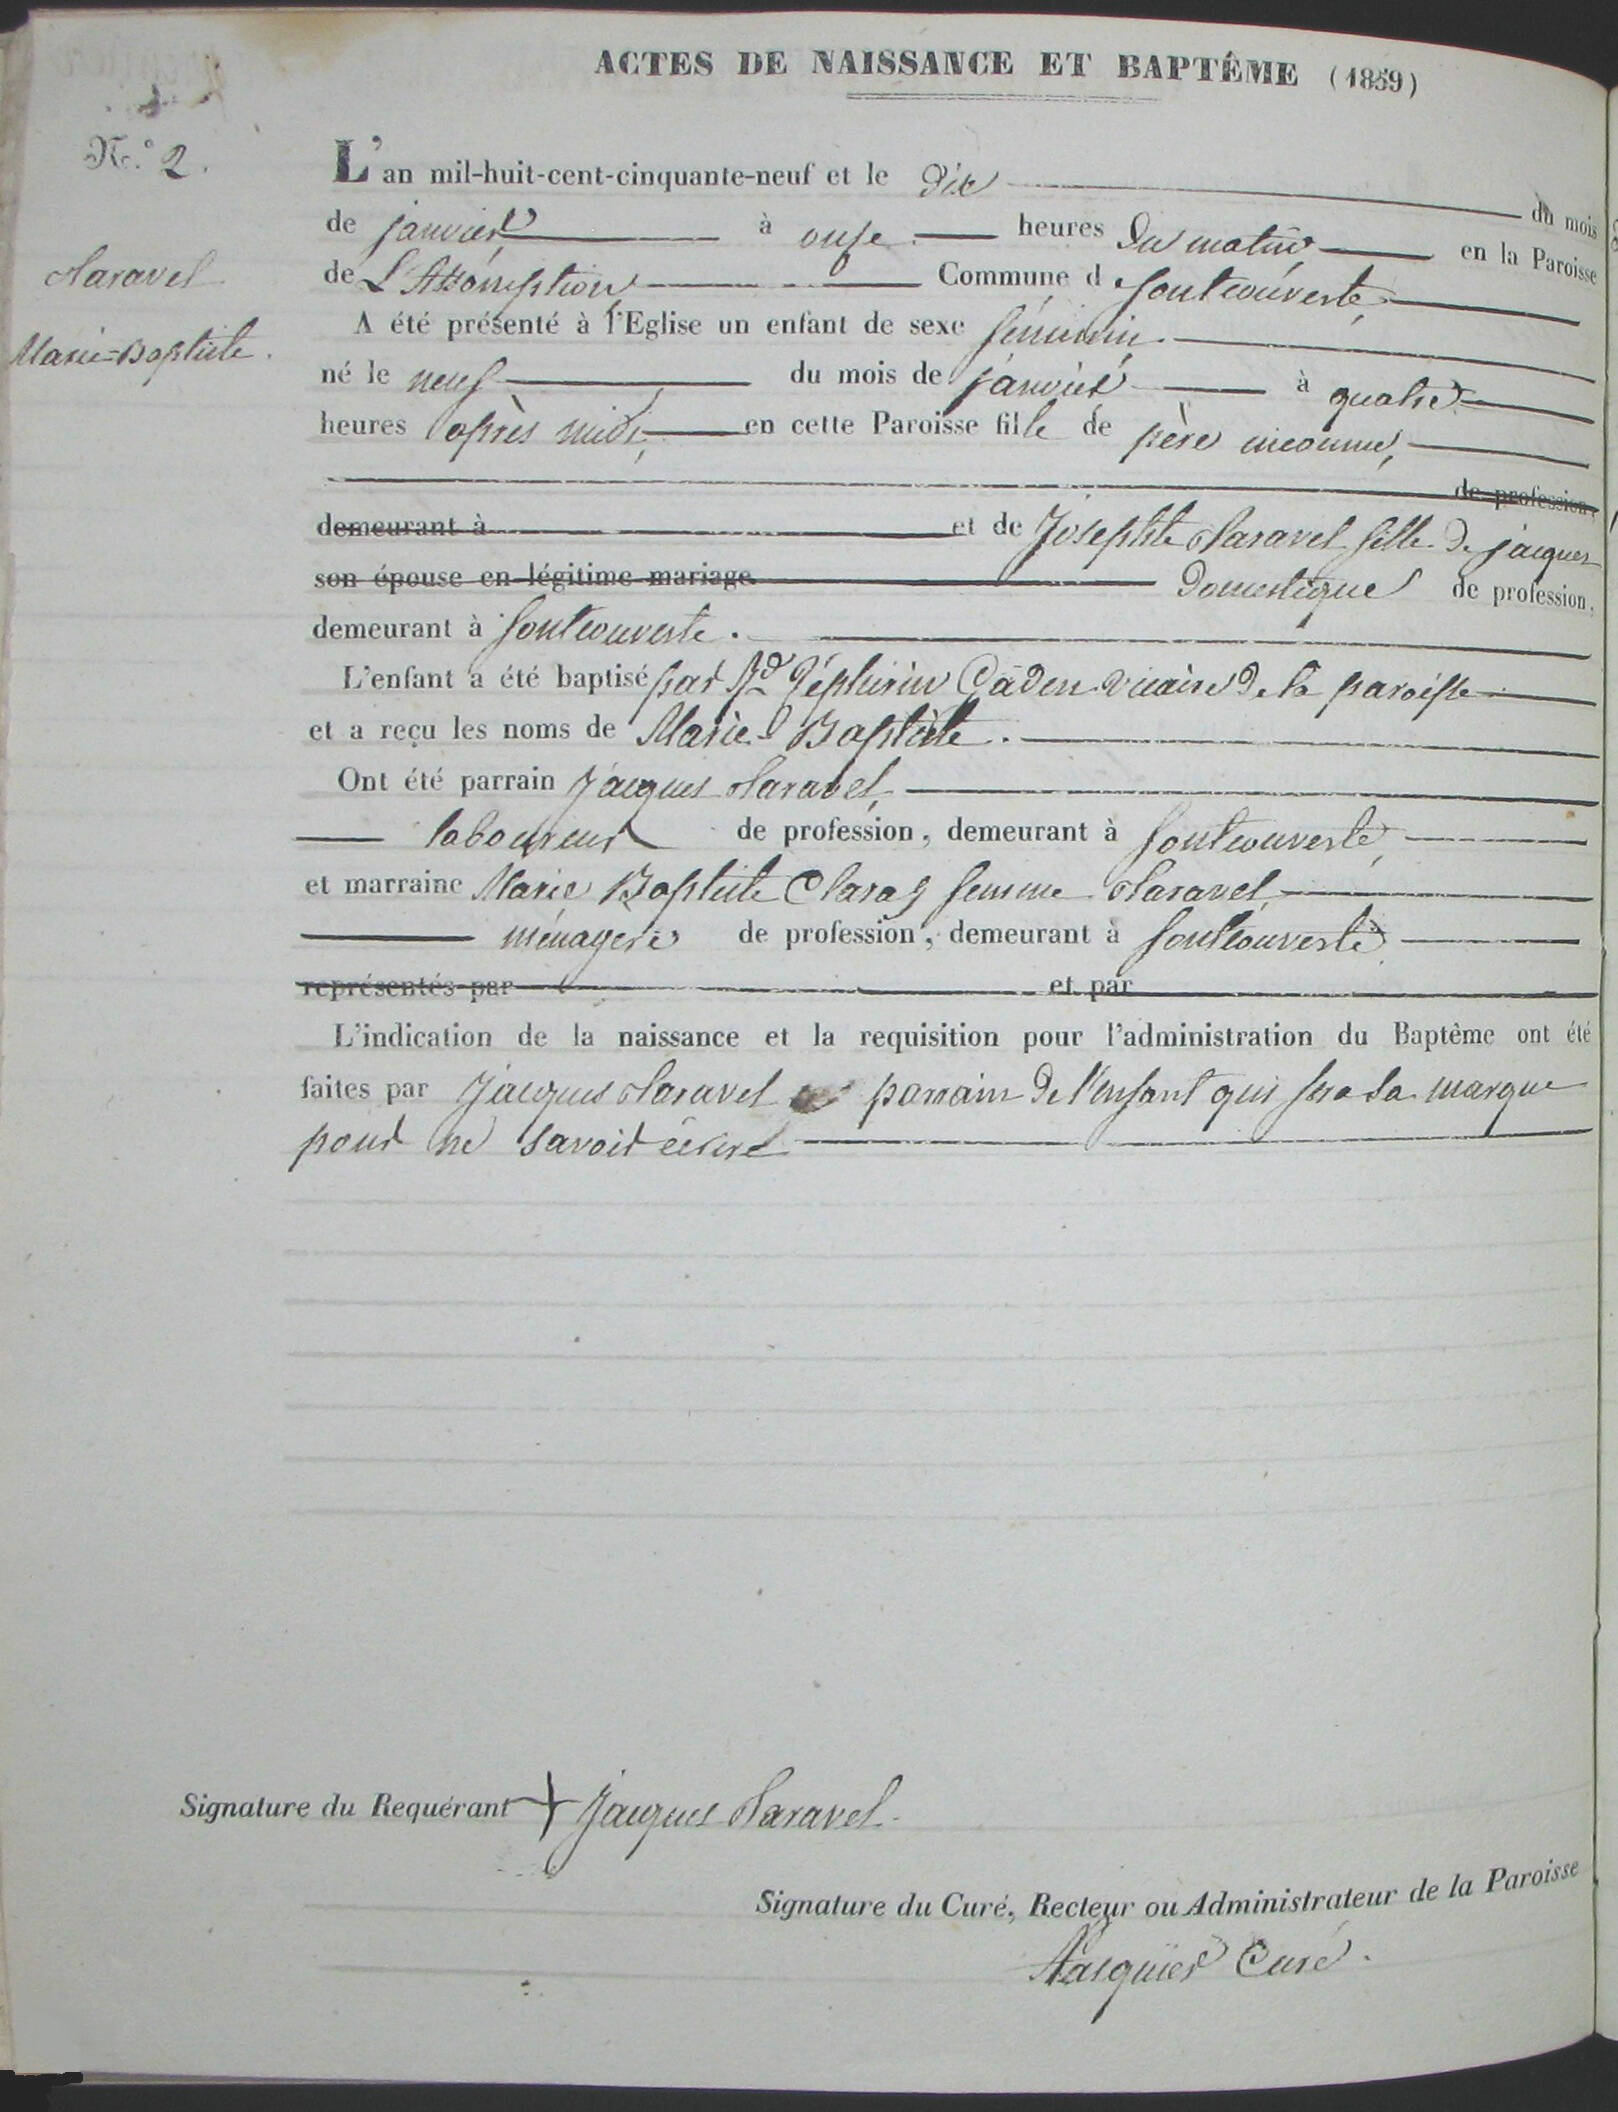 ACTES DE NAISSANCE ET BAPTÊME (1859)
N.° 2.
L'an mil-huit-cent-cinquante-neuf et le dix du mois
de janvier à onze heures du matin en la Paroisse
de L'Assomption Commune d fontcouverte,
Claravel
A été présenté à l'Eglise un enfant de sexe féminin.
Marie-Baptiste.
né le neuf du mois de janvier à quatre
heures après midi, en cette Paroisse fille de père inconnu,
de profession,
demeurant à et de Josephte Claravel fille de jacques
son épouse en légitime mariage domestique de profession,
demeurant à fontcouverte.
L'enfant a été baptisé par Rd Zéphirin vicaire de la paroisse
et a reçu les noms de Marie Baptiste.
Ont été parrain Jacques Claravel,
laboureur de profession, demeurant à fontcouverte,
et marraine Marie Baptiste femme Claravel
ménagère de profession, demeurant à fontcouverte
représentés par et par
L'indication de la naissance et la requisition pour l'administration du Baptême ont été
faites par Jacques Claravel parrain de l'enfant qui fera sa marque
pour ne savoir écrire
Signature du Requérant + Jacques Claravel
Signature du Curé, Recteur ou Administrateur de la Paroisse
Curé.